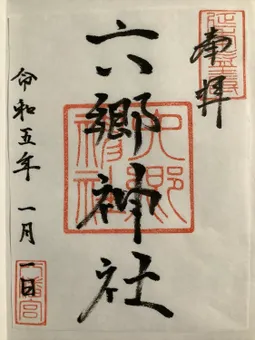 奉拝
六郷神社
六郷
神社
令和五年 一月 一日